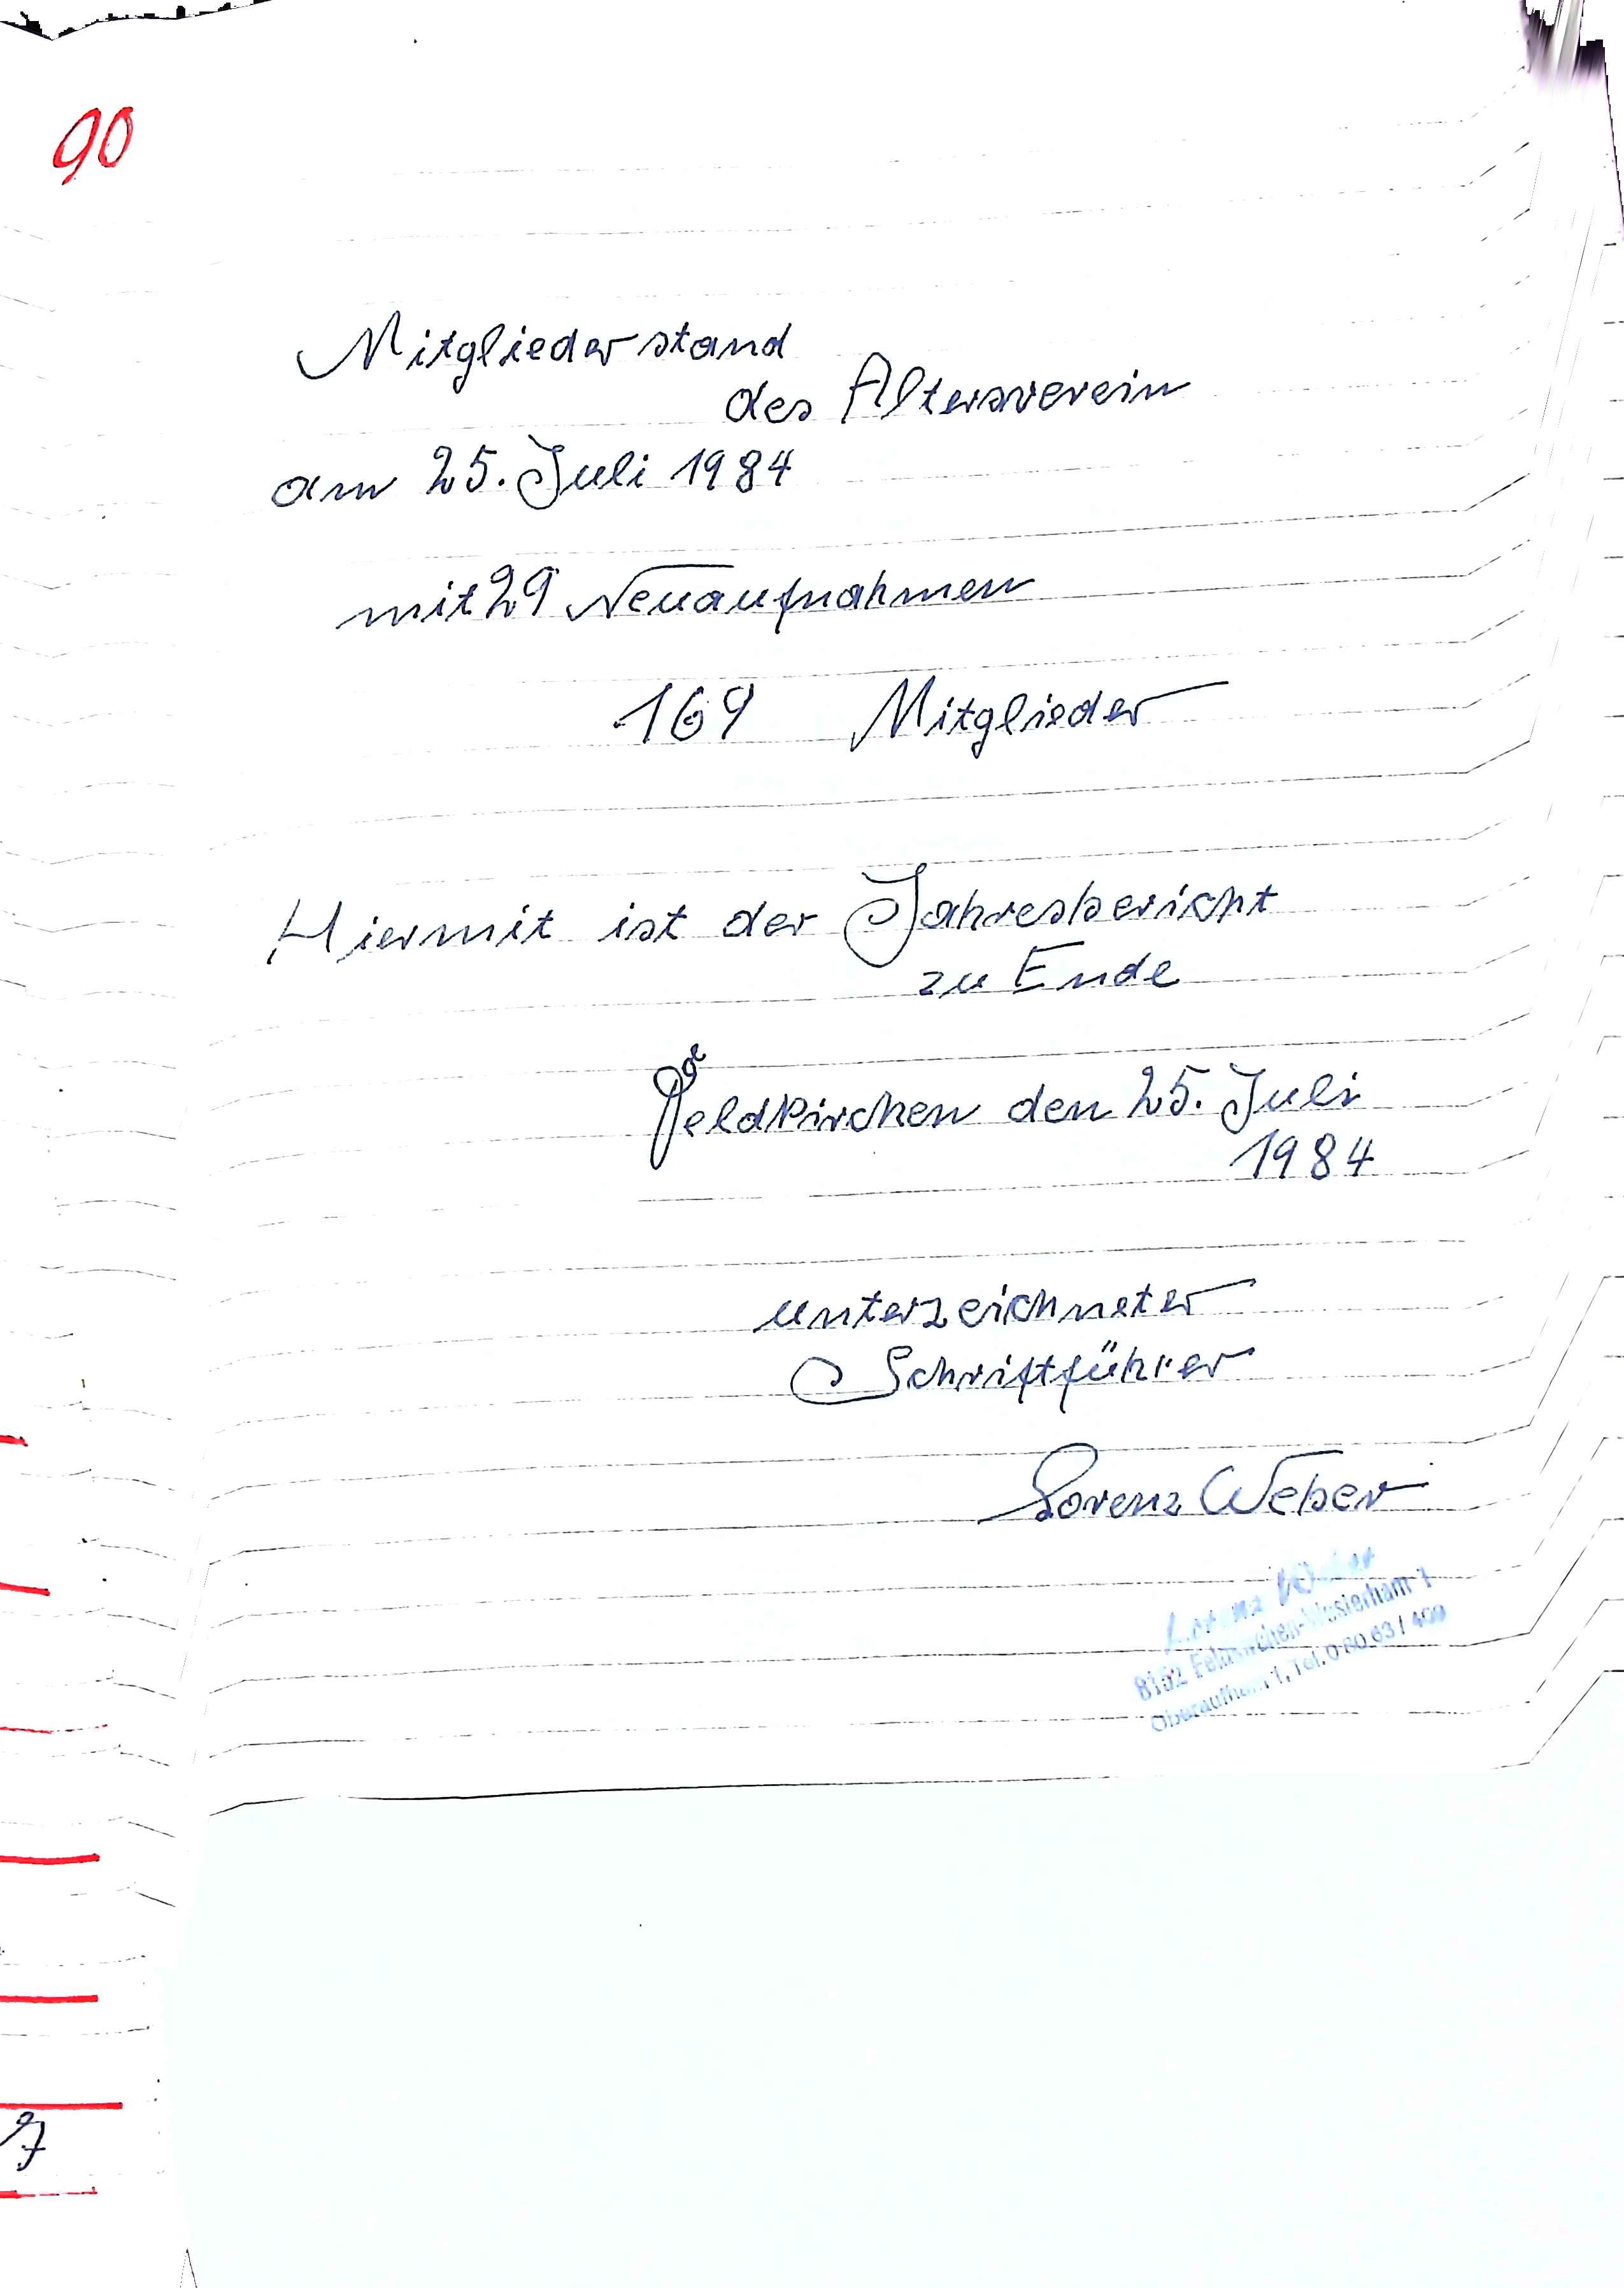 90
Mitgliederstand
des Altersverein
am 25. Juli 1984
mit 29 Neuaufnahmen
169 Mitglieder
Hiermit ist der Jahresbericht
zu Ende
Feldkirchen den 25. Juli
1984
unterzeichneter
Schriftführer
Lorenz Weber
Lorenz Weber
8152 Feldkirchen-Westerham 1
Tel. 0 80 63 /
7